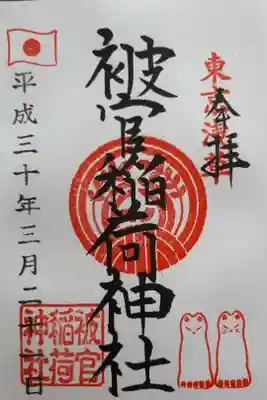 東京淺草
奉拝
被官稲荷神社
平成三十年三月二十一日
被官
稲荷
神社